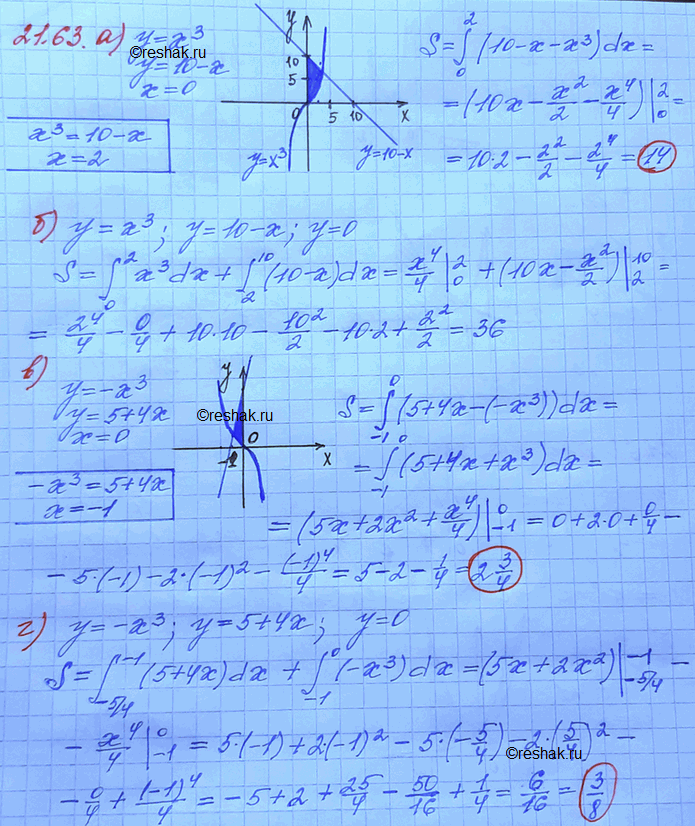 21.63. а) y=x³
y=10-x
x=0
©reshak.ru
x³=10-x
x=2
y
10
5
0
5
10
x
y=x³
y=10-x
S=∫₀² (10-x-x³)dx=
=(10x-x²/2-x⁴/4)|₀²=
=10·2-2²/2-2⁴/4=14
б) y=x³; y=10-x; y=0
S=∫₀² x³dx+∫₂¹⁰ (10-x)dx=x⁴/4|₀² +(10x-x²/2)|₂¹⁰=
=2⁴/4-0/4+10·10-10²/2-10·2+2²/2=36
в) y=-x³
y=5+4x
x=0
-x³=5+4x
x=-1
y
©reshak.ru
0
-1
x
S=∫₋₁⁰ (5+4x-(-x³))dx=
=∫₋₁⁰ (5+4x+x³)dx=
=(5x+2x²+x⁴/4)|₋₁⁰=0+2·0+0/4-
-5·(-1)-2·(-1)²-(-1)⁴/4=5-2-1/4=2 3/4
г) y=-x³; y=5+4x; y=0
S=∫_{-5/4}^{-1} (5+4x)dx+∫₋₁⁰ (-x³)dx=(5x+2x²)|_{-5/4}^{-1}-
-x⁴/4|₋₁⁰=5·(-1)+2·(-1)²-5·(-5/4)-2·(5/4)²-
©reshak.ru
-0/4+(-1)⁴/4=-5+2+25/4-50/16+1/4=6/16=3/8